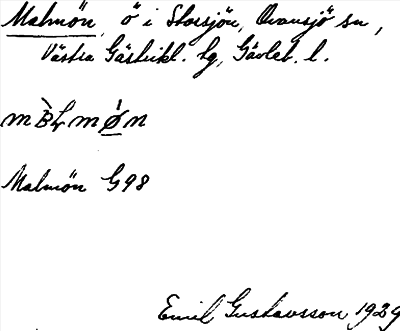 Malmön, ö i Storsjön, Ovansjö sn,
Västra Gästrikl. tg, Gävleb. l.
Malmön G98
Emil Gustavsson 1929